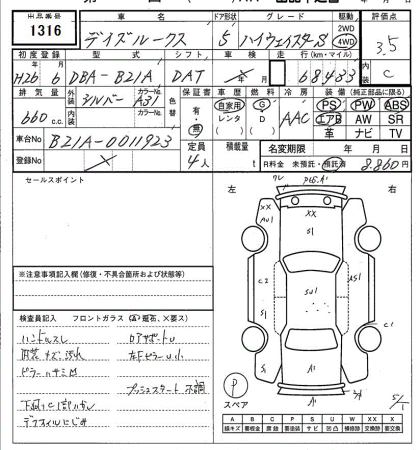 出品番号 車名 ドア形状 グレード 駆動 評価点
1316 デイズルークス 5 ハイウェイスターS 2WD 4WD 3.5
初度登録 型式 シフト 車検 走行(km・マイル) 内装
H26年 6月 DBA-B21A DAT 年 月 68,433 C
排気量 外装 シルバー カラーNo. A31 色替 保証書 車歴 燃料 冷房 装備(純正部品に限る)
660 c.c. 内装 カラーNo. 有・無 自家用 レンタ G D AAC PS PW ABS
エアB AW SR
革 ナビ TV
車台No B21A-0011923 定員 積載量 名変期限 年 月 日
登録No 4人 t R料金 未預託・預託済 8,860円
セールスポイント 左 右
※注意事項記入欄(修復・不具合箇所および状態等)
検査員記入 フロントガラス
ハンドルスレ ロアサポートU
内装キズ汚れ 左Fピラー U小
プッシュスタート不調
XX
XX S1
S1 SU1
C2 C1
S1 A1
P
スペア
A B C P S U W X XX
線キズ 要板金 腐蝕 要塗装 サビ 凹凸 補修跡 交換跡 要交換